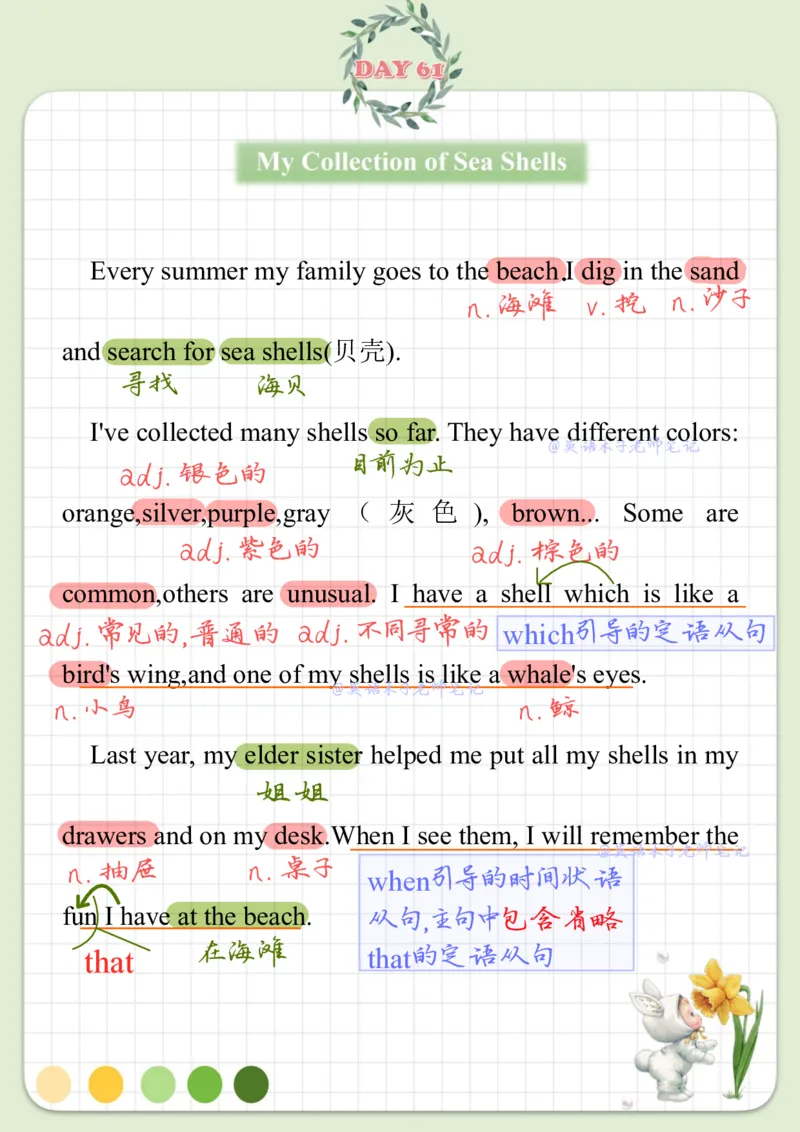 DAY 61
My Collection of Sea Shells
Every summer my family goes to the beach.I dig in the sand
n.海滩 v.挖 n.沙子
and search for sea shells(贝壳).
寻找 海贝
I've collected many shells so far. They have different colors:
@英语木子老师笔记
adj.银色的 目前为止
orange,silver,purple,gray （ 灰 色 ), brown... Some are
adj.紫色的 adj.棕色的
common,others are unusual. I have a shell which is like a
adj.常见的,普通的 adj.不同寻常的 which引导的定语从句
bird's wing,and one of my shells is like a whale's eyes.
@英语木子老师笔记
n.小鸟 n.鲸
Last year, my elder sister helped me put all my shells in my
姐姐
drawers and on my desk.When I see them, I will remember the
@英语木子老师笔记
n.抽屉 n.桌子 when引导的时间状语
fun I have at the beach. 从句,主句中包含省略
that 在海滩 that的定语从句